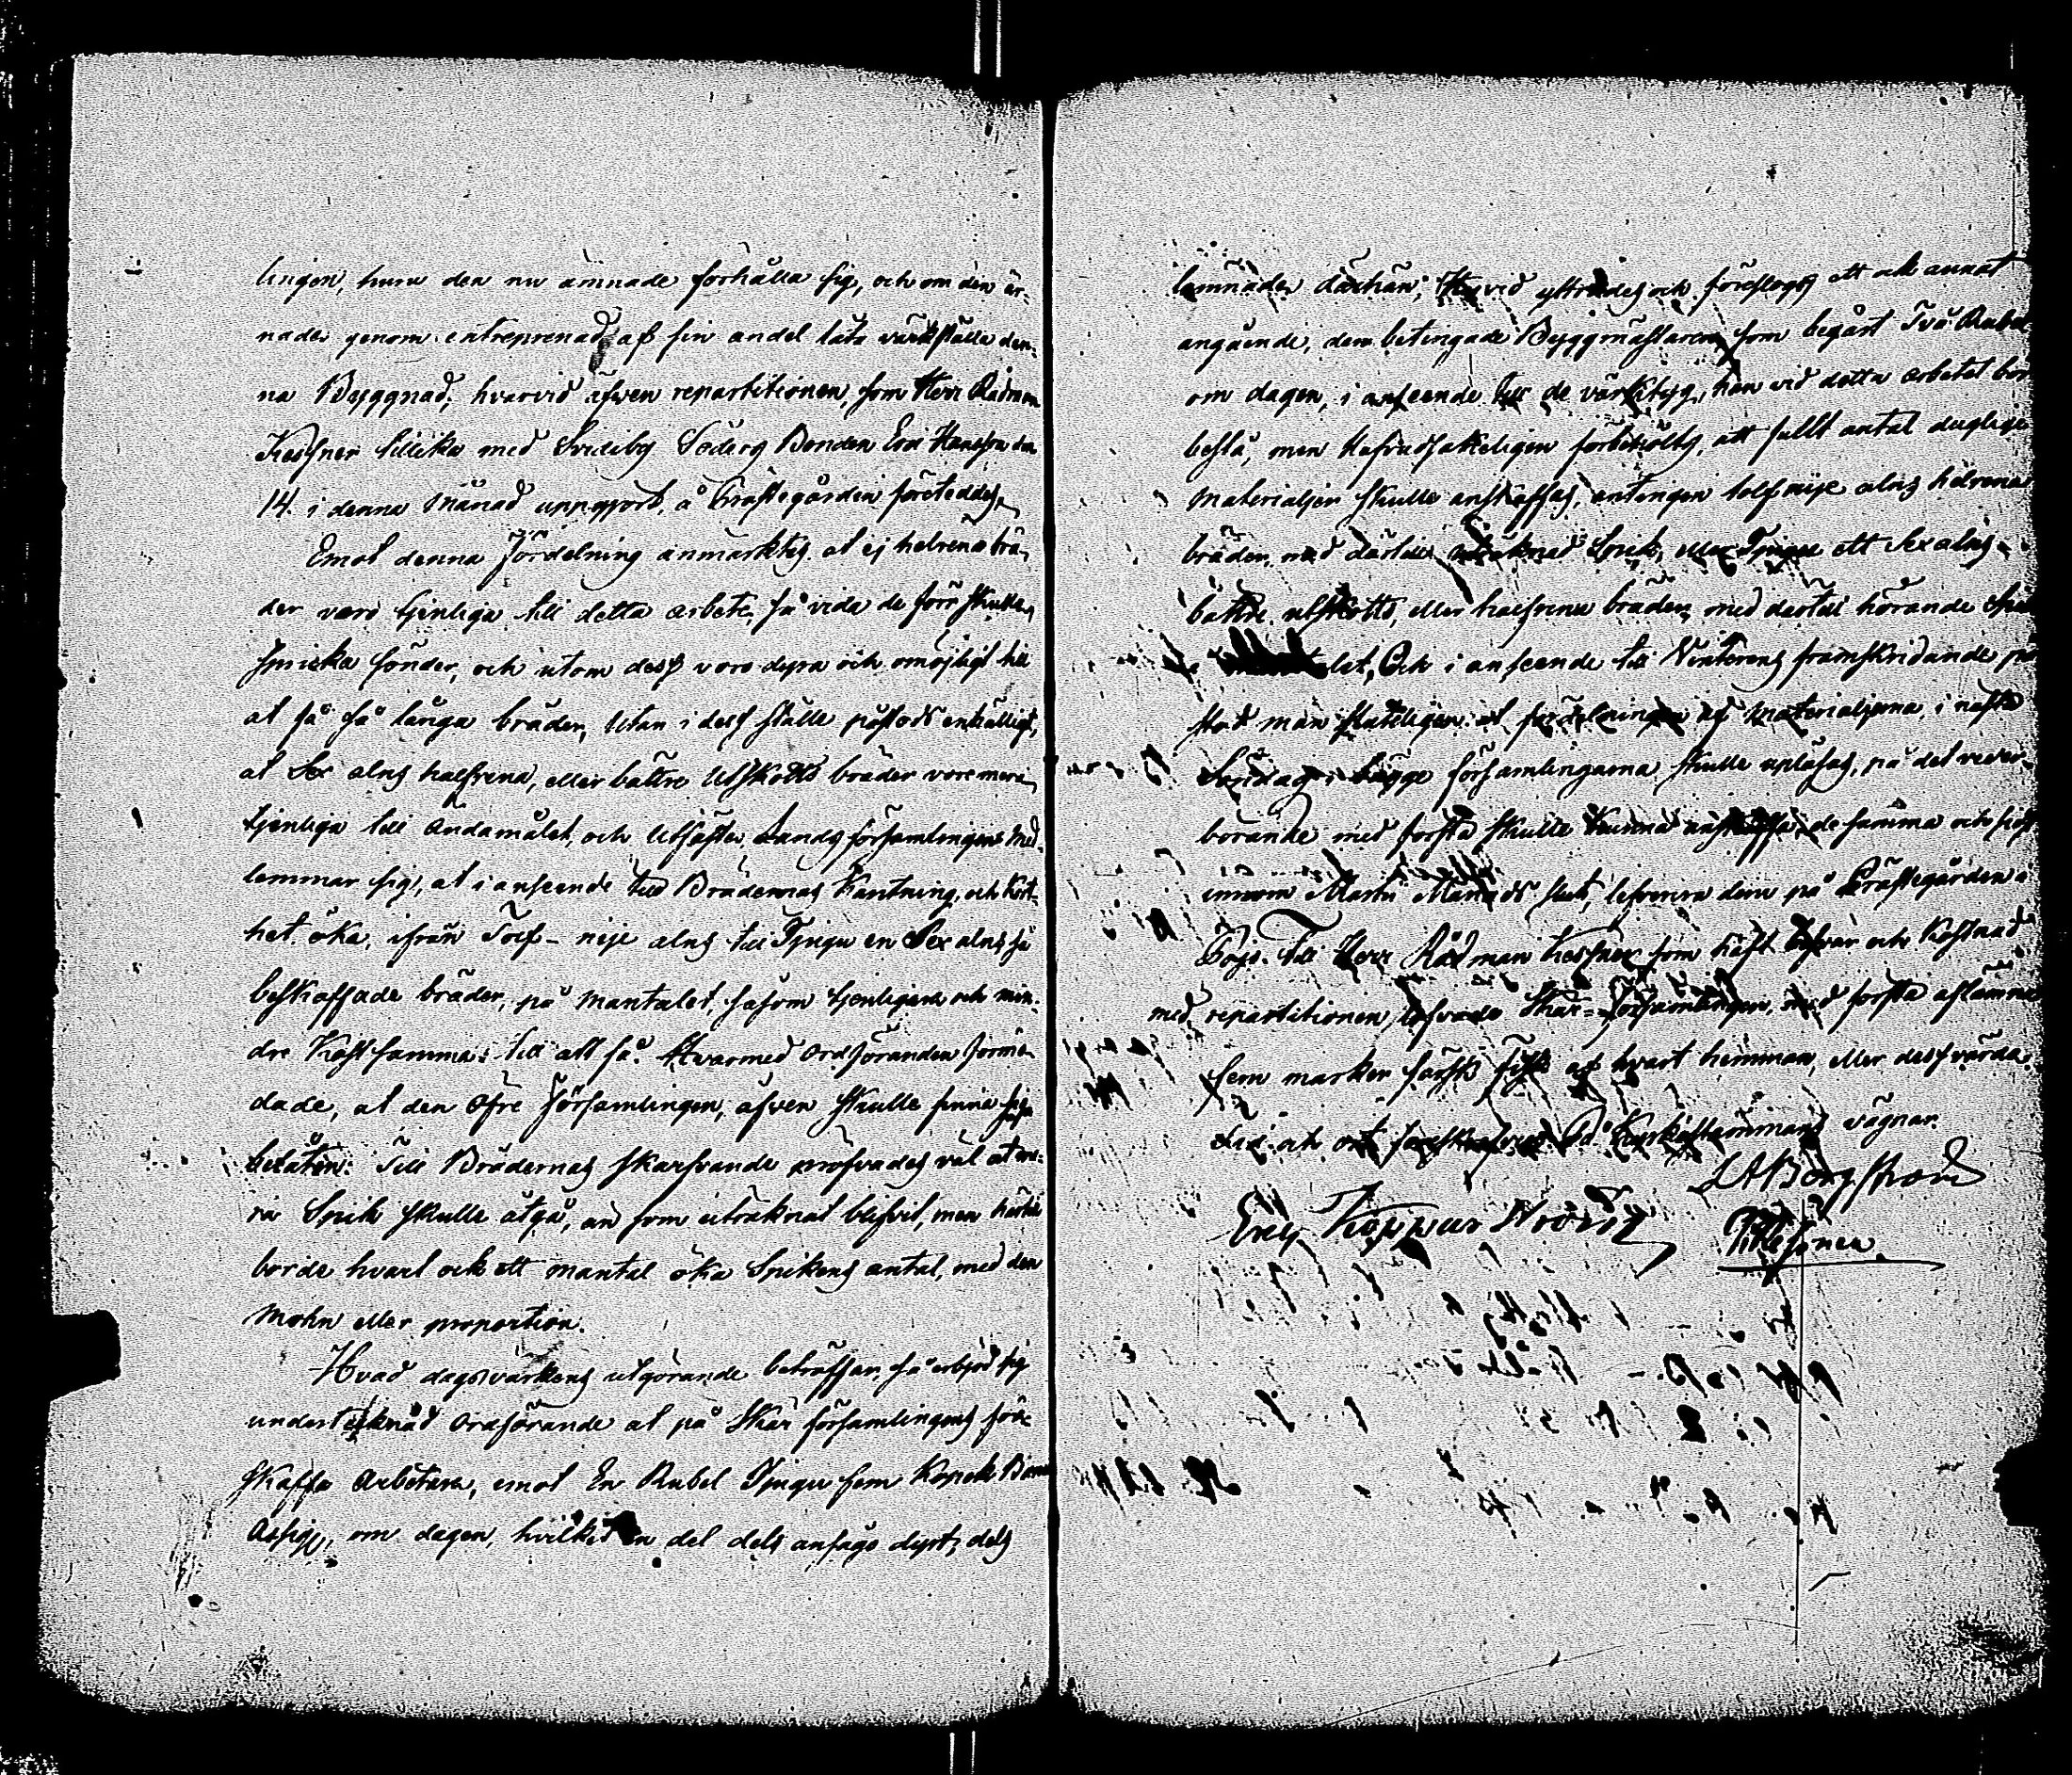 lingen, huru den nu ämnade förhålla sig, och om den är-
nade genom entreprenad af sin andel låta värkställa den-
na Byggnad; hvarvid äfven repartitionen, som Herr Rådman
Kessner tillika med Söderg Bonden Eric Hansson den
14. i denna Månad uppgjort, å Prästegården företeddes.
Emot denna Fördelning anmärktes at ej helrena brä-
der voro tjenliga till detta arbete, så vida de förr skulle
spricka sönder, och utom dess voro dyra och omöjligt till
at få så långa bräder, utan i dess ställe påstods enhälligt,
at Sex alns halfrena, eller bättre Utskotts bräder vore mera
tjenliga till ändamålet, och Utfäste Lands församlingens Med-
lemmar sig, at i anseende till Brädernas Kantning, och kort-
het öka, ifrån Tolf - nije alns till Tjugu en Sex alns så
beskaffade bräder, på Mantalet, såsom tjenligare och min-
dre Kostsamma till alt så. Hvarmed Ordföranden förmo-
dade, at den Öfre Församlingen, äfven skulle finna sig
belåten. Till Brädernas skarfvande pröfvades väl at me-
ra Spik skulle åtgå, än som uträknat blifvit, men härtil
borde hvart ock ett mantal öka Spikens antal, med den
Mohn eller proportion.
Hvad dagsvärkens utgörande beträffar, så erbjöd sig
undertecknad Ordförande at på Skär församlingens för-
skaffa Arbetare, emot En Rubel Tjugu fem Kopek Banco
Assign, om dagen, hvilket en del dels ansågo dyrt, dels
lemnades därhän; Hvid yttrades och föreslogs ett och annat
angående, den betingade Byggmästaren som begärt Två Rubel
om dagen, i anseende till de värktyg, han vid detta arbetet bör
bestå, men hufvudsakeligen förbehölts, att fullt antal duglige
Materialjer skulle anskaffas, antingen tolf nije alns helrena
bräder, med därtill uträknad Spik, eller Tjugu ett Sex alns
bättre utskotts, eller halfrena bräder med därtill hörande Spik
lat, Och i anseende till Vinterens framskridande på
stod man at fördelningen af Materialjerna, i nästa
Söndag i bägge församlingarna skulle upläsas, på det veder-
börande med första skulle kunna anskaffa de samma och sist
innom Martii Månads slut, leferera dem på Prästegården i
Pojo. Till Herr Rådman Kessner som haft besvär och Kostnad
med repartitionen lofvade Skär-Församlingen, med första aflämna
fem marker färsk fisk af hvart hemman, eller dess värde.
Lect. och På Kyrkostämmans vägnar.
L A Borgström
Eric Kessner